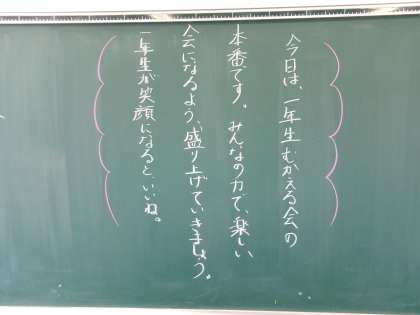 今日は、一年生むかえる会の
本番です。みんなの力で、楽しい
会になるよう、盛り上げていきましょう。
一年生が笑顔になると、いいね。